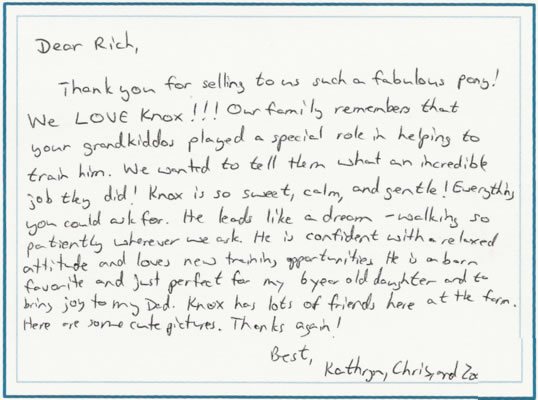 Dear Rich,
Thank you for selling to us such a fabulous pony!
We LOVE Knox!!! Our family remembers that
your grandkiddos played a special role in helping to
train him. We wanted to tell them what an incredible
job they did! Knox is so sweet, calm, and gentle! Everything
you could ask for. He leads like a dream - walking so
patiently wherever we ask. He is confident with a relaxed
attitude and loves new training opportunities. He is a barn
favorite and just perfect for my 6 year old daughter and to
bring joy to my Dad. Knox has lots of friends here at the farm.
Here are some cute pictures. Thanks again!
Best,
Kathryn, Chris, and